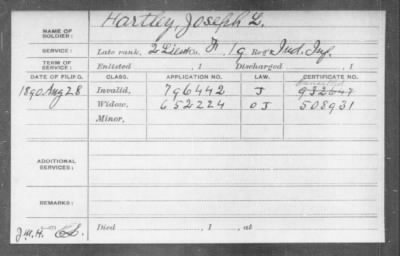 NAME OF SOLDIER: Hartley, Joseph L.
SERVICE: Late rank, 2 Lieut Co. F, 19 Reg't Ind. Inf.
TERM OF SERVICE: Enlisted , 1 Discharged , 1
DATE OF FILING. CLASS. APPLICATION NO. LAW. CERTIFICATE NO.
1890 Aug 28 Invalid, 796442 J 932647
Widow, 652224 OJ 508931
Minor,
ADDITIONAL SERVICES:
REMARKS:
J.M.H. Died , 1 , at